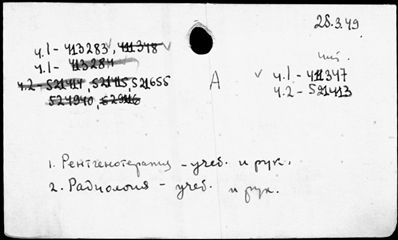 28.3.49.
ч.1 - 413283, 411348
ч.1 - 413284
ч.2 - 521411, 521415, 521655
524940,
А
ч.1 - 411347
ч.2 - 521413
1. Рентгенотерапия - учеб. и рук.
2. Радиология - учеб. и рук.